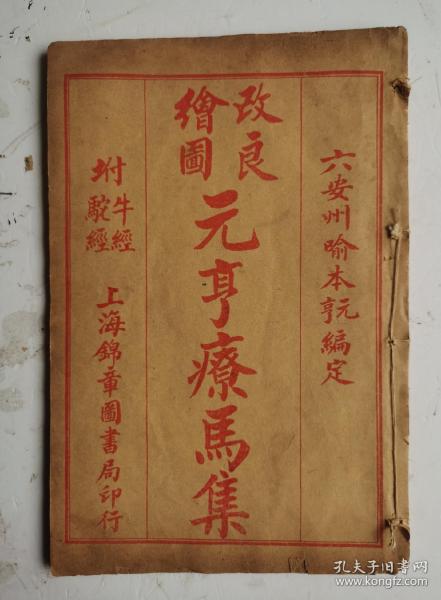 六安州喻本元亨編定
改良
繪圖
元亨療馬集
坿牛經
駝經
上海錦章圖書局印行
孔夫子旧书网
www.kongfz.com